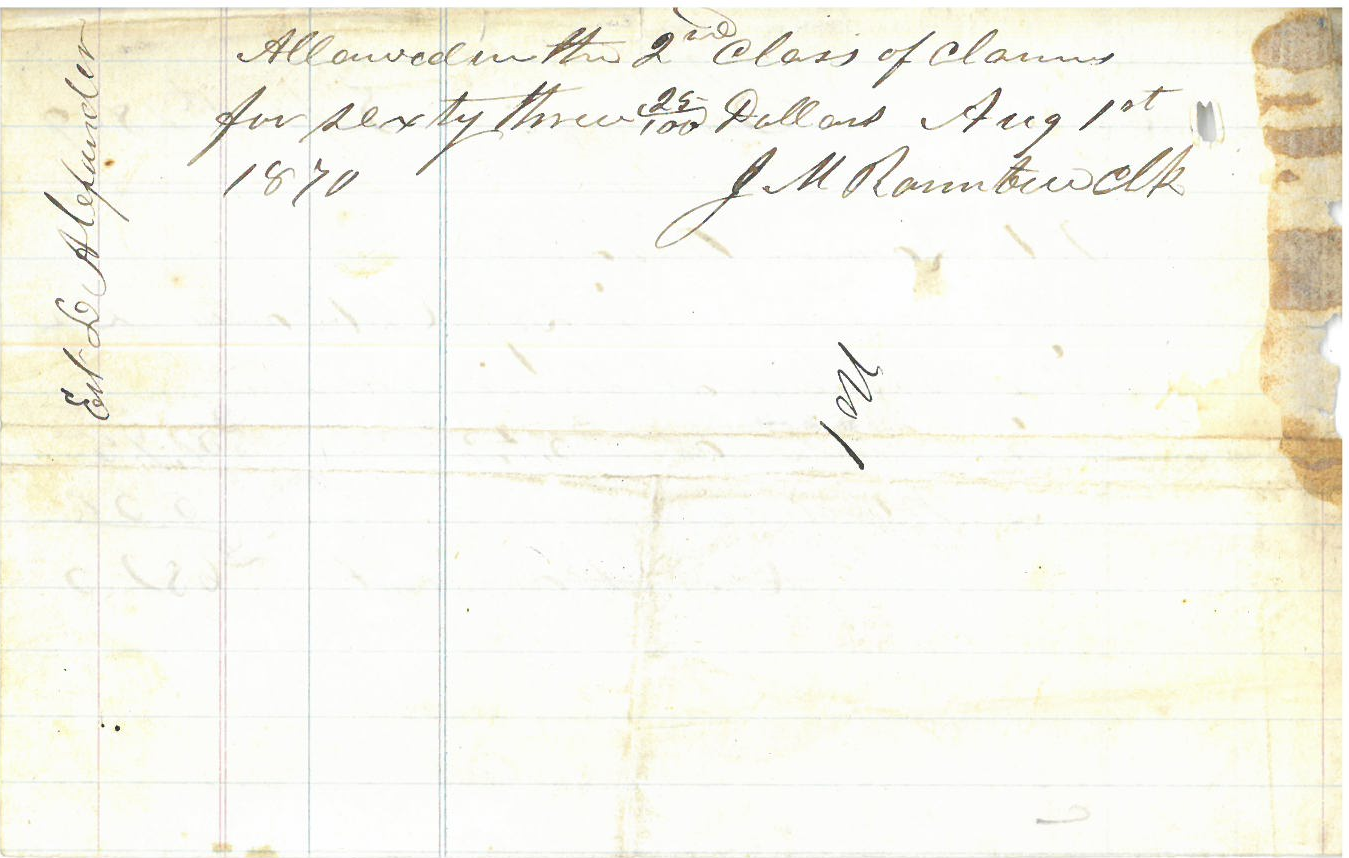 Allowed in the 2nd Class of Claims
for sixty three 25/100 Dollars Aug 1st
1870 J M Clk
Est D Alexander
No 1